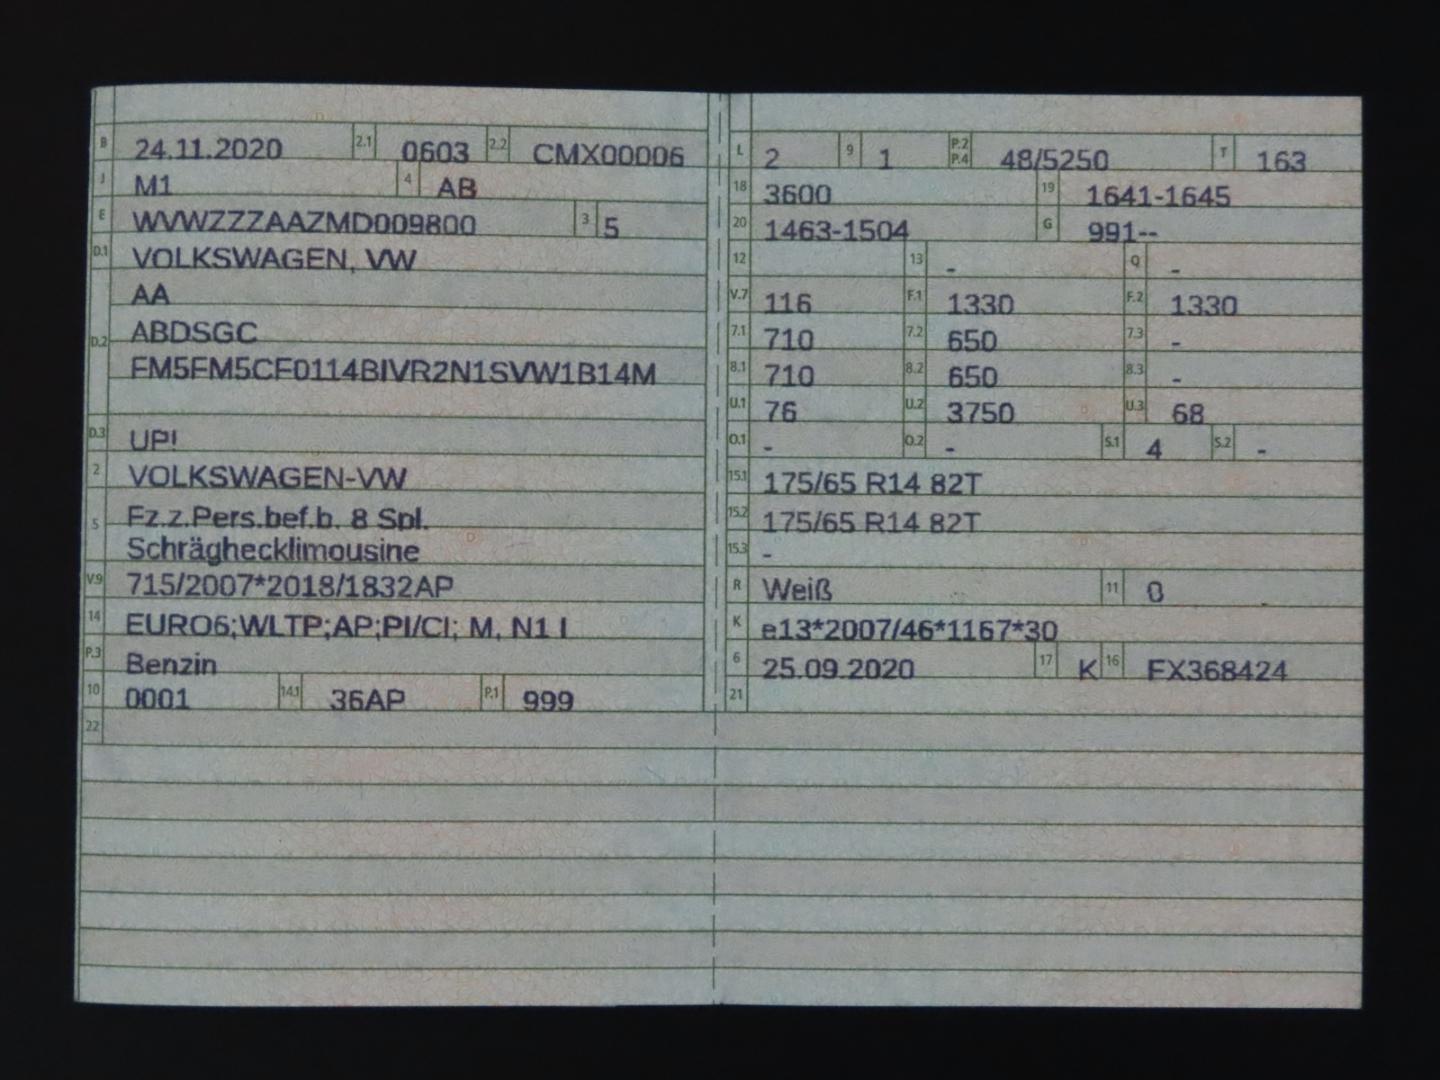 B 24.11.2020 2.1 0603 2.2 CMX00006
J M1 4 AB
E WVWZZZAAZMD009800 3 5
D.1 VOLKSWAGEN, VW
AA
D.2 ABDSGC
FM5FM5CF0114BIVR2N1SVW1B14M
D.3 UP!
2 VOLKSWAGEN-VW
5 Fz.z.Pers.bef.b. 8 Spl.
Schräghecklimousine
V.9 715/2007*2018/1832AP
14 EURO6;WLTP;AP;PI/CI; M, N1 I
P.3 Benzin
10 0001 14.1 36AP P.1 999
22
L 2 9 1 P.2 P.4 48/5250 T 163
18 3600 19 1641-1645
20 1463-1504 G 991--
12 13 - Q -
V.7 116 F.1 1330 F.2 1330
7.1 710 7.2 650 7.3 -
8.1 710 8.2 650 8.3 -
U.1 76 U.2 3750 U.3 68
O.1 - O.2 - S.1 4 S.2 -
15.1 175/65 R14 82T
15.2 175/65 R14 82T
15.3 -
R Weiß 11 0
K e13*2007/46*1167*30
6 25.09.2020 17 K 16 FX368424
21